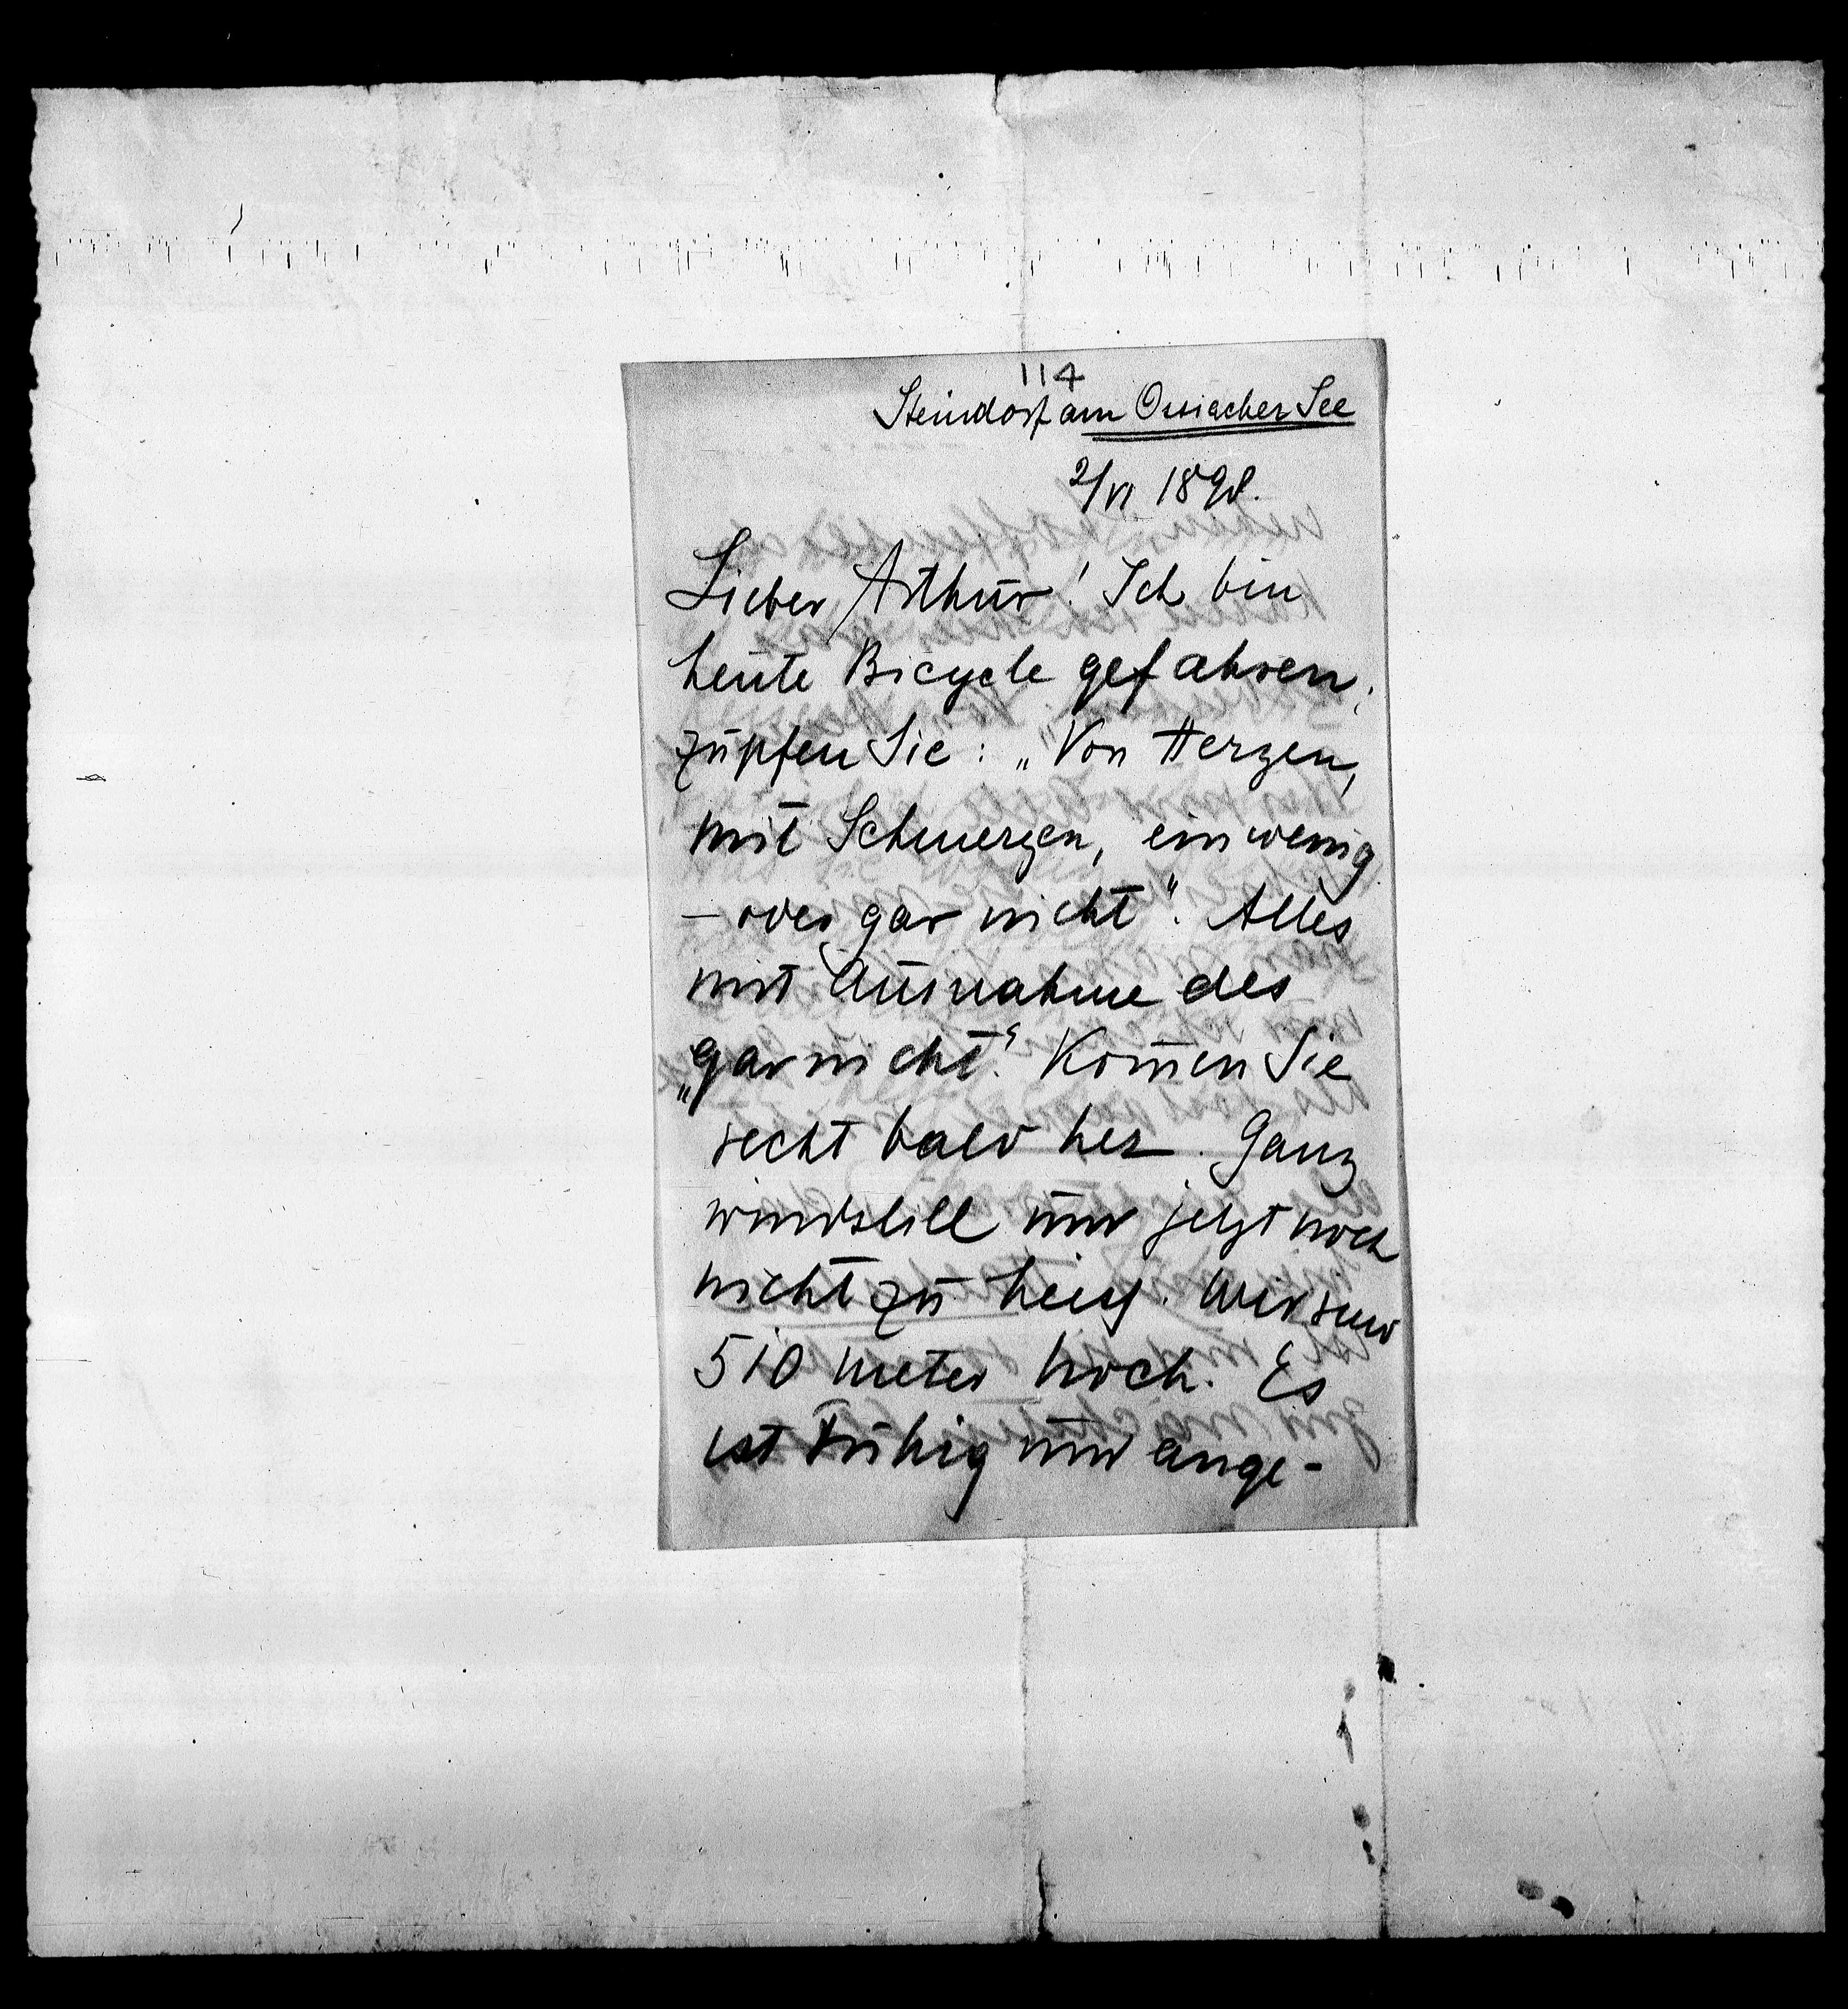 114
Steindorf am Ossiacher See
2/VI 1898.
Lieber Arthur! Ich bin
heute Bicycle gefahren;
zupfen Sie: „Von Herzen,
mit Schmerzen, ein wenig
– oder gar nicht“. Alles
mit Ausnahme des
„gar nicht“. Kom̄en Sie
recht bald her. Ganz
windstill und jetzt noch
nicht zu heiss. Wir sind
510 Meter hoch. Es
ist ruhig und ange-